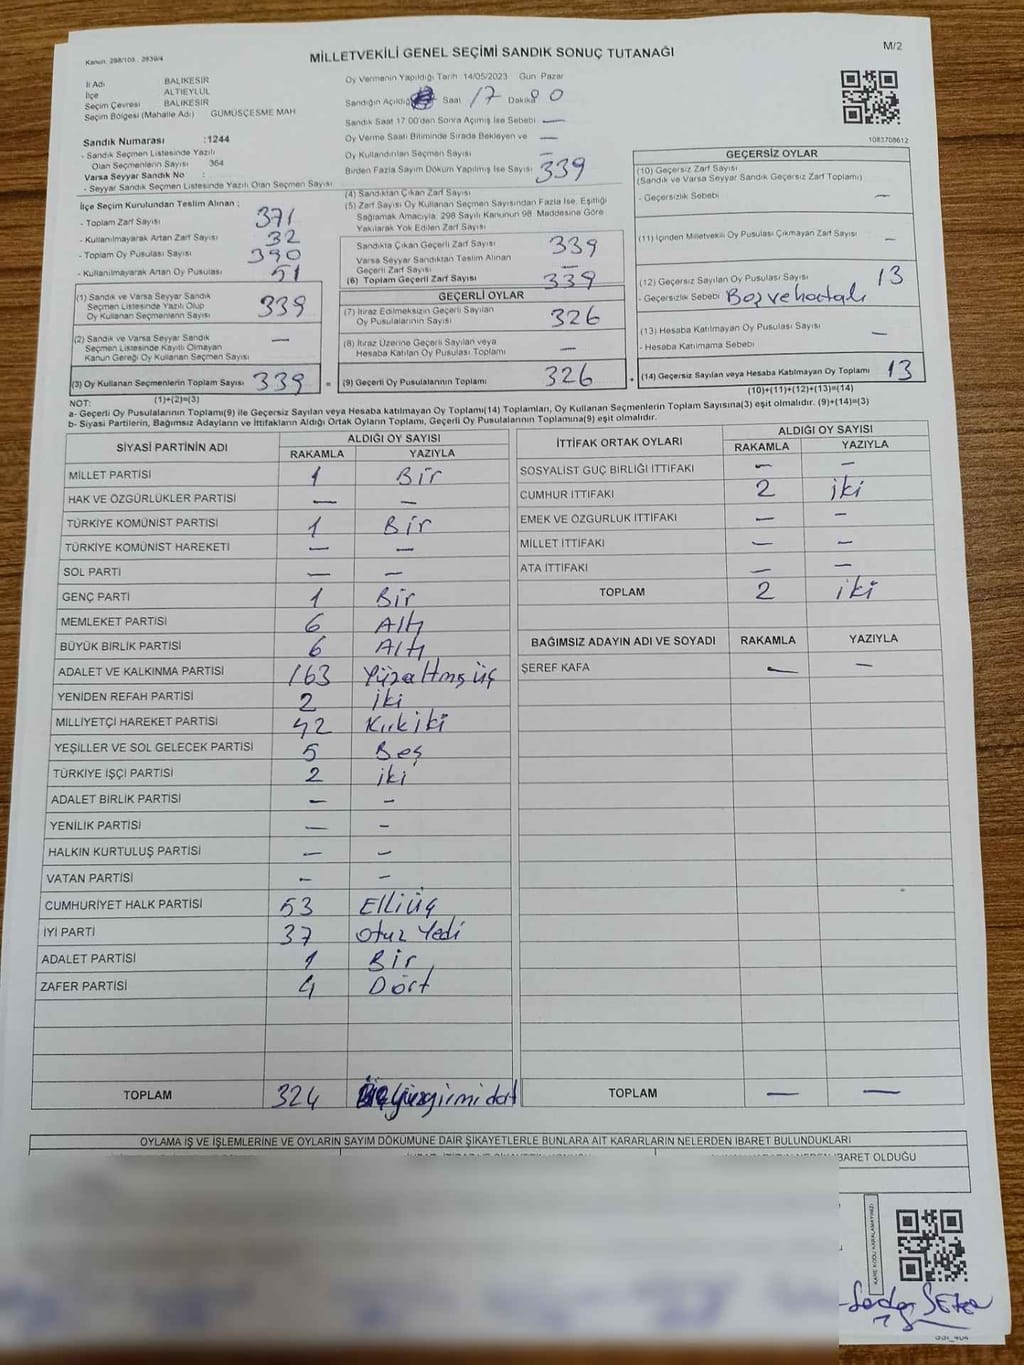 Kanun: 298/105 , 2839/4
MİLLETVEKİLİ GENEL SEÇİMİ SANDIK SONUÇ TUTANAĞI
M/2
İl Adı BALIKESİR
İlçe ALTIEYLÜL
Seçim Çevresi BALIKESİR
Seçim Bölgesi (Mahalle Adı) GÜMÜŞÇEŞME MAH
Sandık Numarası :1244
- Sandık Seçmen Listesinde Yazılı
Olan Seçmenlerin Sayısı 364
Varsa Seyyar Sandık No :
- Seyyar Sandık Seçmen Listesinde Yazılı Olan Seçmen Sayısı
İlçe Seçim Kurulundan Teslim Alınan ;
- Toplam Zarf Sayısı 371
- Kullanılmayarak Artan Zarf Sayısı 32
- Toplam Oy Pusulası Sayısı 390
- Kullanılmayarak Artan Oy Pusulası 51
(1) Sandık ve Varsa Seyyar Sandık
Seçmen Listesinde Yazılı Olup
Oy Kullanan Seçmenlerin Sayısı 339
(2) Sandık ve Varsa Seyyar Sandık
Seçmen Listesinde Kayıtlı Olmayan
Kanun Gereği Oy Kullanan Seçmen Sayısı —
(3) Oy Kullanan Seçmenlerin Toplam Sayısı 339 =
(1)+(2)=(3)
Oy Vermenin Yapıldığı Tarih 14/05/2023 Gün Pazar
Sandığın Açıldığı Saat 17 Dakika 00
Sandık Saat 17:00'den Sonra Açılmış İse Sebebi —
Oy Verme Saati Bitiminde Sırada Bekleyen ve —
Oy Kullandırılan Seçmen Sayısı —
Birden Fazla Sayım Döküm Yapılmış İse Sayısı
(4) Sandıktan Çıkan Zarf Sayısı 339
(5) Zarf Sayısı Oy Kullanan Seçmen Sayısından Fazla İse, Eşitliği
Sağlamak Amacıyla, 298 Sayılı Kanunun 98. Maddesine Göre
Yakılarak Yok Edilen Zarf Sayısı
Sandıkta Çıkan Geçerli Zarf Sayısı 339
Varsa Seyyar Sandıktan Teslim Alınan
Geçerli Zarf Sayısı —
(6) Toplam Geçerli Zarf Sayısı 339
GEÇERLİ OYLAR
(7) İtiraz Edilmeksizin Geçerli Sayılan
Oy Pusulalarının Sayısı 326
(8) İtiraz Üzerine Geçerli Sayılan veya
Hesaba Katılan Oy Pusulası Toplamı —
(9) Geçerli Oy Pusulalarının Toplamı 326
1083708612
GEÇERSİZ OYLAR
(10) Geçersiz Zarf Sayısı
(Sandık ve Varsa Seyyar Sandık Geçersiz Zarf Toplamı)
- Geçersizlik Sebebi —
(11) İçinden Milletvekili Oy Pusulası Çıkmayan Zarf Sayısı —
(12) Geçersiz Sayılan Oy Pusulası Sayısı 13
- Geçersizlik Sebebi Boş ve hatalı
(13) Hesaba Katılmayan Oy Pusulası Sayısı —
- Hesaba Katılmama Sebebi
(14) Geçersiz Sayılan veya Hesaba Katılmayan Oy Toplamı 13
(10)+(11)+(12)+(13)=(14)
NOT:
a- Geçerli Oy Pusulalarının Toplamı(9) ile Geçersiz Sayılan veya Hesaba katılmayan Oy Toplamı(14) Toplamları, Oy Kullanan Seçmenlerin Toplam Sayısına(3) eşit olmalıdır. (9)+(14)=(3)
b- Siyasi Partilerin, Bağımsız Adayların ve İttifakların Aldığı Ortak Oyların Toplamı, Geçerli Oy Pusulalarının Toplamına(9) eşit olmalıdır.
SİYASİ PARTİNİN ADI ALDIĞI OY SAYISI
RAKAMLA YAZIYLA
MİLLET PARTİSİ 1 Bir
HAK VE ÖZGÜRLÜKLER PARTİSİ — —
TÜRKİYE KOMÜNİST PARTİSİ 1 Bir
TÜRKİYE KOMÜNİST HAREKETİ — —
SOL PARTİ — —
GENÇ PARTİ 1 Bir
MEMLEKET PARTİSİ 6 Altı
BÜYÜK BİRLİK PARTİSİ 6 Altı
ADALET VE KALKINMA PARTİSİ 163 Yüzaltmış üç
YENİDEN REFAH PARTİSİ 2 iki
MİLLİYETÇİ HAREKET PARTİSİ 42 Kırk iki
YEŞİLLER VE SOL GELECEK PARTİSİ 5 Beş
TÜRKİYE İŞÇİ PARTİSİ 2 iki
ADALET BİRLİK PARTİSİ — —
YENİLİK PARTİSİ — —
HALKIN KURTULUŞ PARTİSİ — —
VATAN PARTİSİ — —
CUMHURİYET HALK PARTİSİ 53 Elliüç
İYİ PARTİ 37 Otuz Yedi
ADALET PARTİSİ 1 Bir
ZAFER PARTİSİ 4 Dört
TOPLAM 324
İTTİFAK ORTAK OYLARI ALDIĞI OY SAYISI
RAKAMLA YAZIYLA
SOSYALİST GÜÇ BİRLİĞİ İTTİFAKI — —
CUMHUR İTTİFAKI 2 iki
EMEK VE ÖZGÜRLÜK İTTİFAKI — —
MİLLET İTTİFAKI — —
ATA İTTİFAKI — —
TOPLAM 2 iki
BAĞIMSIZ ADAYIN ADI VE SOYADI RAKAMLA YAZIYLA
ŞEREF KAFA — —
TOPLAM — —
OYLAMA İŞ VE İŞLEMLERİNE VE OYLARIN SAYIM DÖKÜMÜNE DAİR ŞİKAYETLERLE BUNLARA AİT KARARLARIN NELERDEN İBARET BULUNDUKLARI
İBARET OLDUĞU
KARE KODU KARALAMAYINIZ!